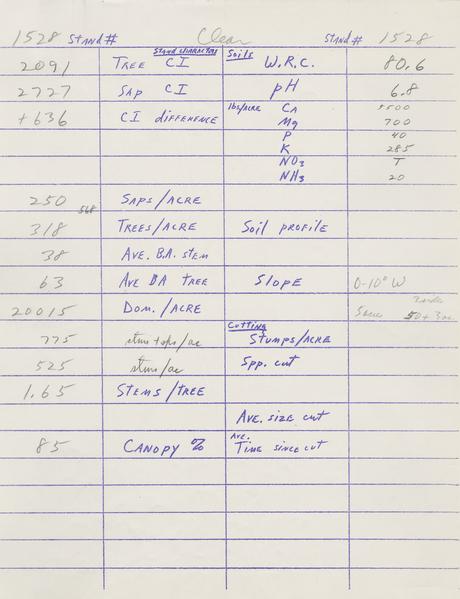 1528 STAND# Clear STAND# 1528
STAND CHARACTERS Soils
2091 TREE CI W.R.C. 80.6
2727 SAP CI pH 6.8
+636 CI DIFFERENCE lbs/ACRE CA +500
Mg 700
P 40
K 285
NO3 T
NH3 20
250 SAPS/ACRE
568
318 TREES/ACRE Soil PROFILE
38 AVE. B.A. STEM
63 AVE BA TREE SLOPE 0-10° W
20015 DOM./ACRE
Cutting
775 stems+saps/ac STUMPS/ACRE
525 stems/ac Spp. cut
1.65 STEMS/TREE
AVE. SIZE CUT
85 CANOPY % AVE. TIME SINCE CUT